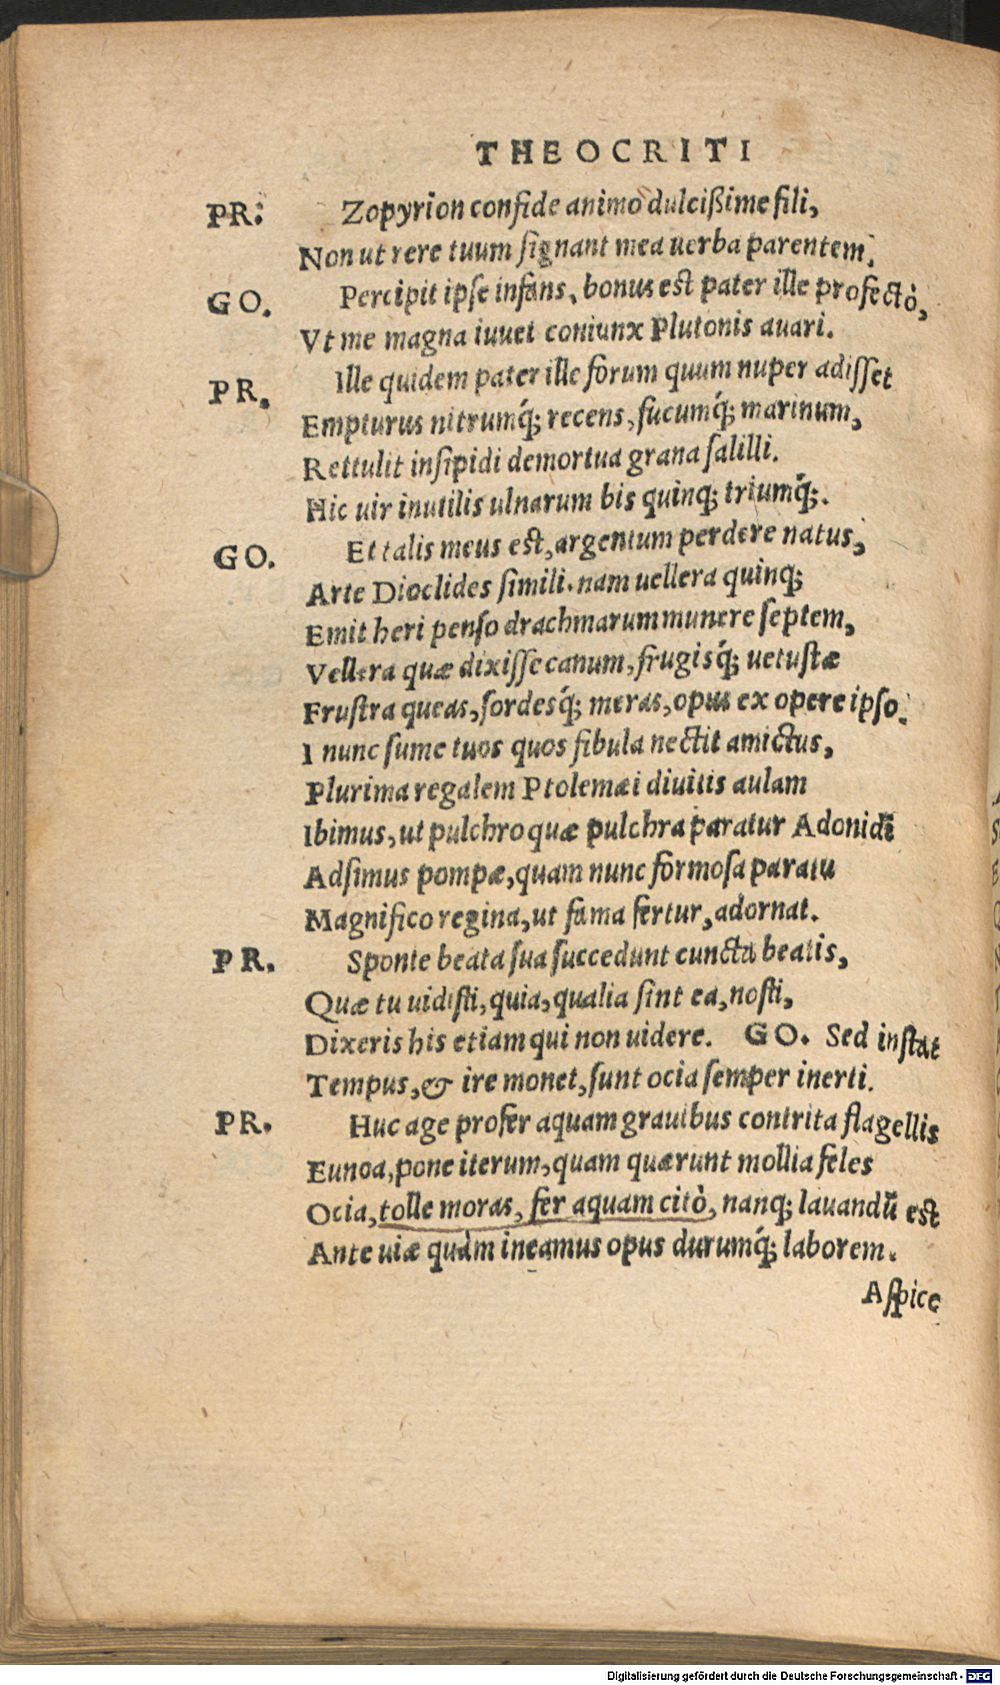 THEOCRITI
PR: Zopyrion confide animo dulcißime fili,
Non ut rere tuum signant mea uerba parentem.
GO. Percipit ipse infans, bonus est pater ille profectò,
Vt me magna iuuet coniunx Plutonis auari.
PR. Ille quidem pater ille forum quum nuper adisset
Empturus nitrumq́; recens, fucumq́; marinum,
Rettulit insipidi demortua grana salilli.
Hic uir inutilis ulnarum bis quinq; triumq́;.
GO. Et talis meus est, argentum perdere natus,
Arte Dioclides simili. nam uellera quinq;
Emit heri penso drachmarum munere septem,
Vellera quæ dixisse canum, frugisq́; uetustæ
Frustra queas, sordesq́; meras, opus ex opere ipso.
I nunc sume tuos quos fibula nectit amictus,
Plurima regalem Ptolemæi diuitis aulam
Ibimus, ut pulchro quæ pulchra paratur Adonidi
Adsimus pompæ, quam nunc formosa paratu
Magnifico regina, ut fama fertur, adornat.
PR. Sponte beata sua succedunt cuncta beatis,
Quæ tu uidisti, quia, qualia sint ea, nosti,
Dixeris his etiam qui non uidere. GO. Sed instat
Tempus, & ire monet, sunt ocia semper inerti.
PR. Huc age profer aquam grauibus contrita flagellis
Eunoa, pone iterum, quam quærunt mollia feles
Ocia, tolle moras, fer aquam citò, nanq; lauandū est
Ante uiæ quàm ineamus opus durumq́; laborem.
Aspice
Digitalisierung gefördert durch die Deutsche Forschungsgemeinschaft - DFG